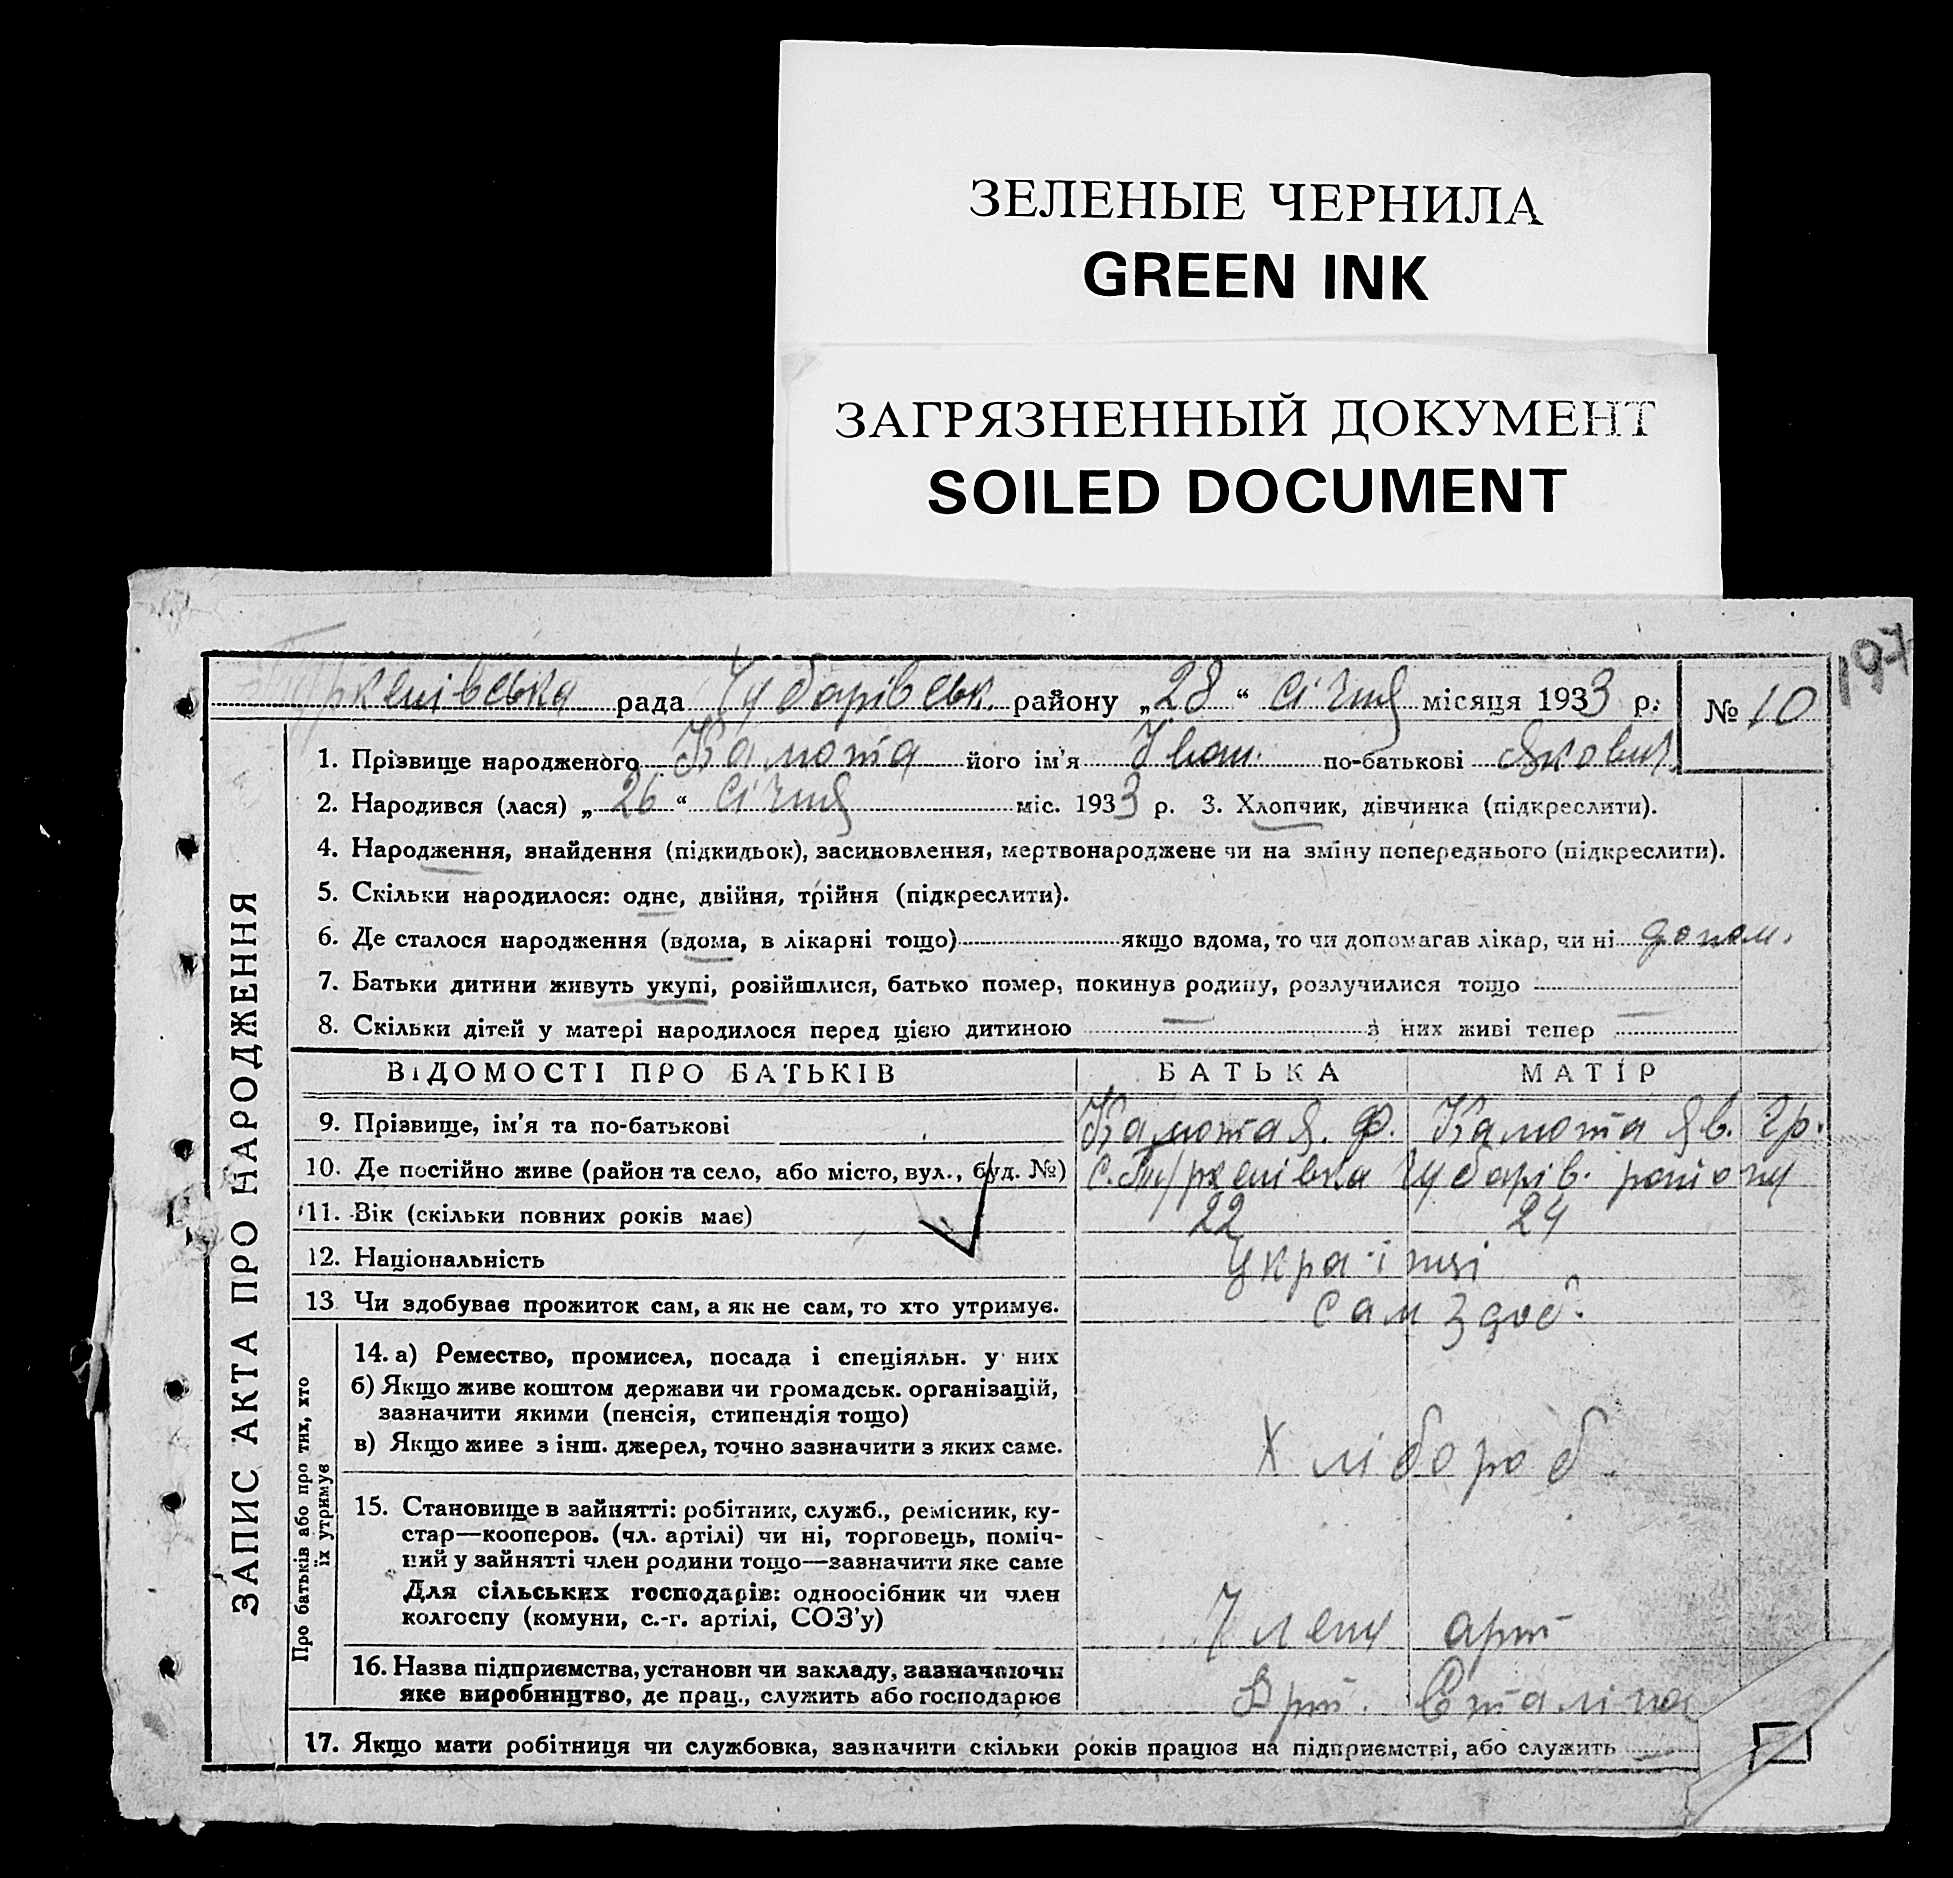 ЗЕЛЕНЫЕ ЧЕРНИЛА
GREEN INK
ЗАГРЯЗНЕННЫЙ ДОКУМЕНТ
SOILED DOCUMENT
197
Туркенівська рада Чубарівськ. району „28“ січня місяця 1933 р. № 10
ЗАПИС АКТА ПРО НАРОДЖЕННЯ
1. Прізвище народженого Камота його ім'я Іван. по-батькові Якович
2. Народився (лася) „26“ січня міс. 1933 р. 3. Хлопчик, дівчинка (підкреслити).
4. Народження, знайдення (підкидьок), засиновлення, мертвонароджене чи на зміну попереднього (підкреслити).
5. Скільки народилося: одне, двійня, трійня (підкреслити).
6. Де сталося народження (вдома, в лікарні тощо) якщо вдома, то чи допомагав лікар, чи ні допом.
7. Батьки дитини живуть укупі, розійшлися, батько помер, покинув родину, розлучилися тощо
8. Скільки дітей у матері народилося перед цією дитиною — з них живі тепер —
ВІДОМОСТІ ПРО БАТЬКІВ БАТЬКА МАТІР
9. Прізвище, ім'я та по-батькові Камота Я. Ф. Камота Яв. Гр.
10. Де постійно живе (район та село, або місто, вул., буд. №) с. Туркенівка Чубарів. району
11. Вік (скільки повних років має) 22 24
12. Національність Українці
13 Чи здобуває прожиток сам, а як не сам, то хто утримує. Сам здоб.
Про батьків або про тих, хто їх утримує
14. а) Ремество, промисел, посада і спеціяльн. у них
б) Якщо живе коштом держави чи громадськ. організацій,
зазначити якими (пенсія, стипендія тощо)
в) Якщо живе з інш. джерел, точно зазначити з яких саме. Хлібороб.
15. Становище в зайнятті: робітник, служб., ремісник, ку-
стар—кооперов. (чл. артілі) чи ні, торговець, поміч-
ний у зайнятті член родини тощо—зазначити яке саме
Для сільських господарів: одноосібник чи член
колгоспу (комуни, с.-г. артілі, СОЗ'у) Члени арт
16. Назва підприємства, установи чи закладу, зазначаючи
яке виробництво, де прац., служить або господарює Арт. Сталіна
17. Якщо мати робітниця чи службовка, зазначити скільки років працює на підприємстві, або служить